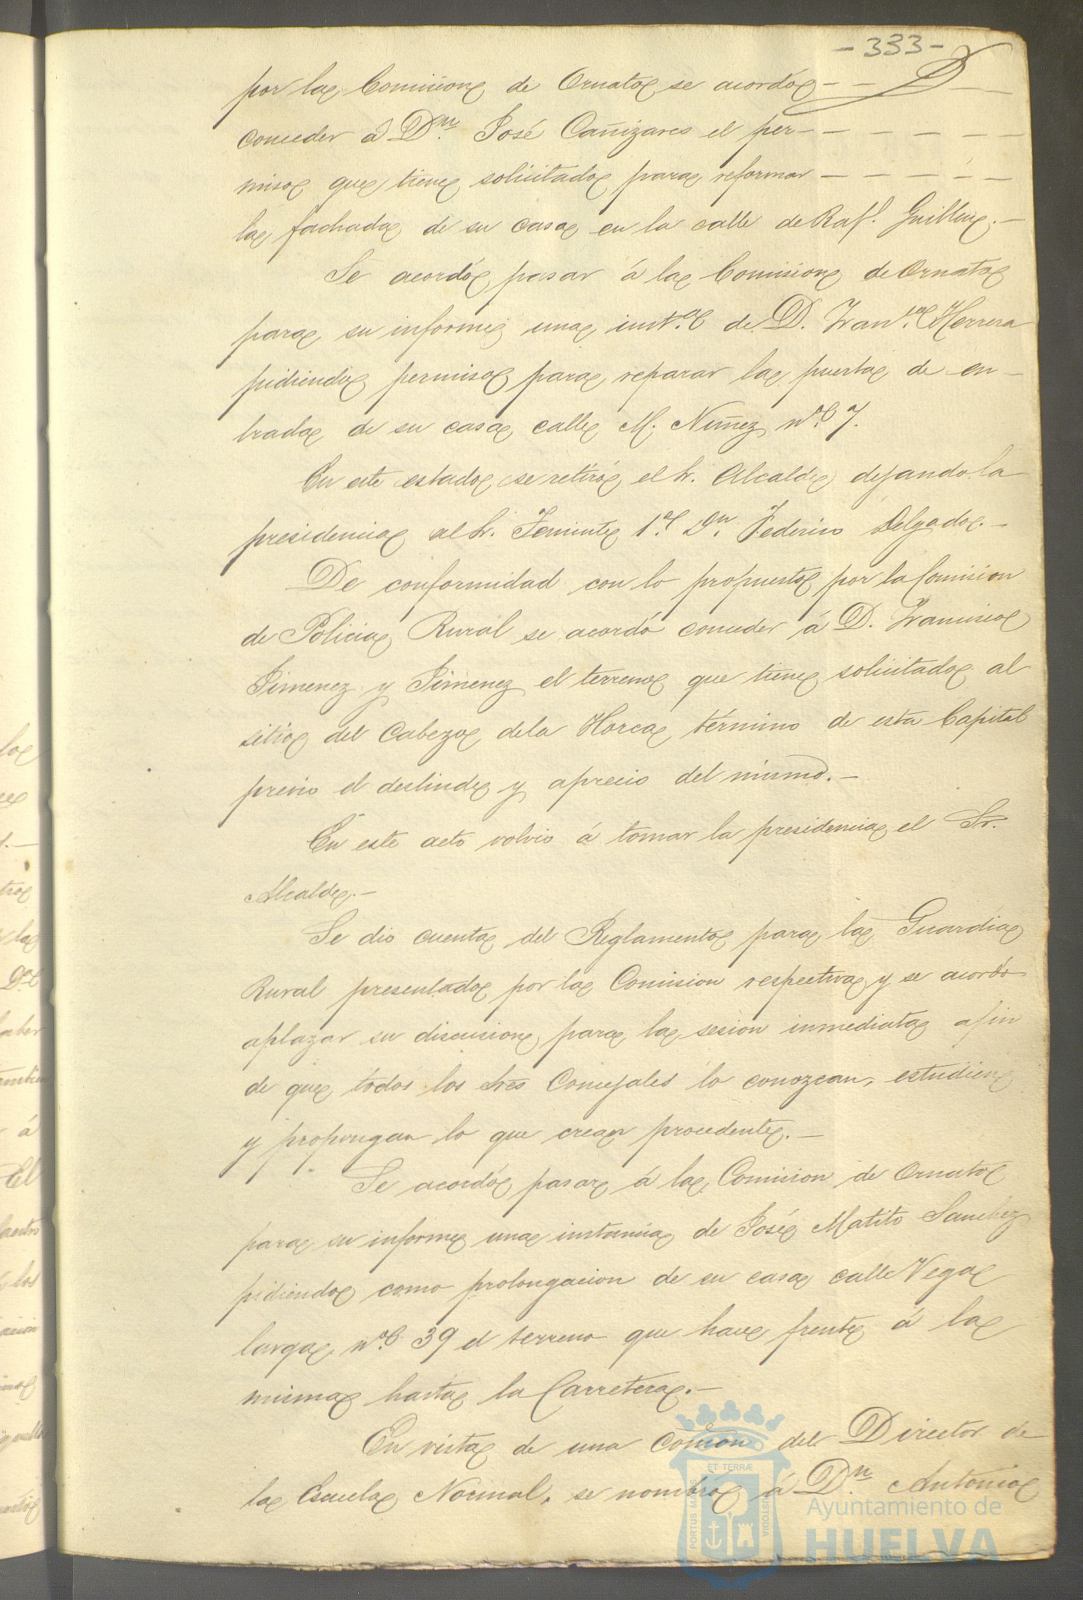 -333-
por la Comision de Ornato se acordó
conceder á Dn. José Cañizares el per-
miso que tiene solicitado para reformar
la fachada de su casa en la calle de Raf.l Guillen.-
Se acordó pasar á la Comision de Ornato
para su informe una inst.a de D. Fran.co Herrera
pidiendo permiso para reparar la puerta de en-
trada de su casa calle M. Nuñez n.o 7.
En este estado se retiró el Sr. Alcalde dejando la
presidencia al Sr. Teniente 1.o Dn. Federico Delgado.-
De conformidad con lo propuesto por la Comision
de Policia Rural se acordó conceder á D. Francisco
Jimenez y Jimenez el terreno que tiene solicitado al
sitio del Cabezo de la Horca, término de esta Capital
previo el deslinde y aprecio del mismo.-
En este acto volvio á tomar la presidencia el Sr.
Alcalde.-
Se dio cuenta del Reglamento para la Guardia
Rural presentado por la Comision respectiva y se acordó
aplazar su discusion para la sesion inmediata afin
de que todos los Sres Concejales lo conozcan, estudien
y propongan lo que crean procedente.-
Se acordó pasar á la Comision de Ornato
para su informe una instancia de José Matito Sanchez
pidiendo como prolongacion de su casa calle Vega
larga n.o 39 el terreno que hace frente á la
misma hasta la Carretera.-
En vista de una comon del Director de
la Escuela Normal, se nombró á Dn. Antonio
PORTUS MARIS ET TERRÆ CUSTODIA
Ayuntamiento de
HUELVA